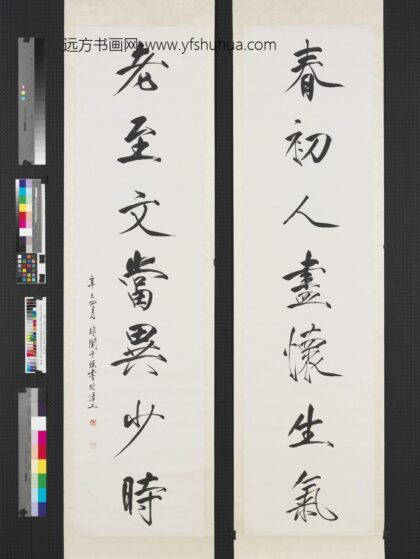 远方书画网-www.yfshuhua.com
春初人盡懷生氣
老至文當異少時
辛巳四月非闇于照書於津上